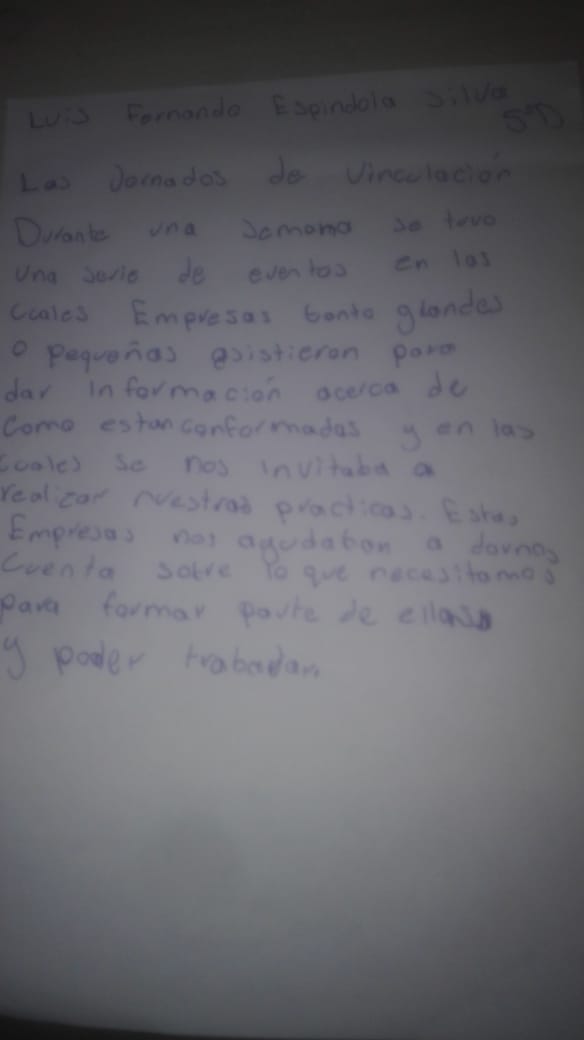 Luis Fernando Espindola Silva
5°D
Las Jornadas de Vinculación
Durante una semana se tuvo
una serie de eventos en las
cuales Empresas tanto grandes
o pequeñas asistieron para
dar información acerca de
como estan conformadas y en las
cuales se nos invitaba a
realizar nuestras practicas. Estas
Empresas nos ayudaban a darnos
cuenta sobre lo que necesitamos
para formar parte de ellas
y poder trabadar.